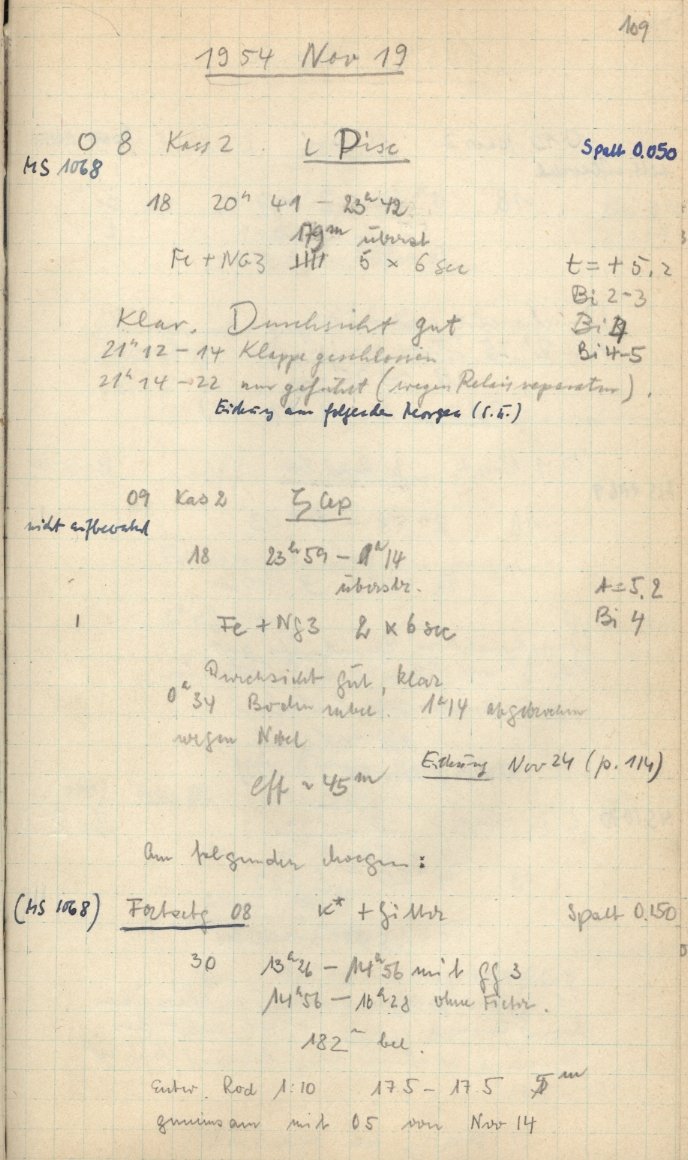 109
1954 Nov 19
08 Kass 2 ι Pisc Spalt 0.050
MS 1068
18 20h 41 – 23h 42
179m überst
Fe + NG3 5 x 6 sec t = + 5,2
Bi 2-3
Klar. Durchsicht gut Bi 4
21h 12 – 14 Klappe geschlossen Bi 4-5
21h 14 – 22 nur geführt (wegen Relaisreparatur).
Eichung am folgenden Morgen (s.u.)
09 Kas 2 ζ Cep
nicht aufbewahrt
18 23h 59 – 1h 14
überstr. t = 5,2
1 Fe + Ng3 2 x 6 sec Bi 4
Durchsicht gut, klar
0h 34 Bodennebel 1h 14 abgebrochen
wegen Nebel
Eichung Nov 24 (p. 114)
eff ~ 45m
Am folgenden Morgen:
(MS 1068) Fortsetzg 08 K* + Gitter Spalt 0.150
30 13h 26 – 14h 56 mit GG 3
14h 56 – 16h 28 ohne Filter.
182m bel.
Entw. Rod 1:10 17 5 – 17 5 5m
gemeinsam mit 05 von Nov 14